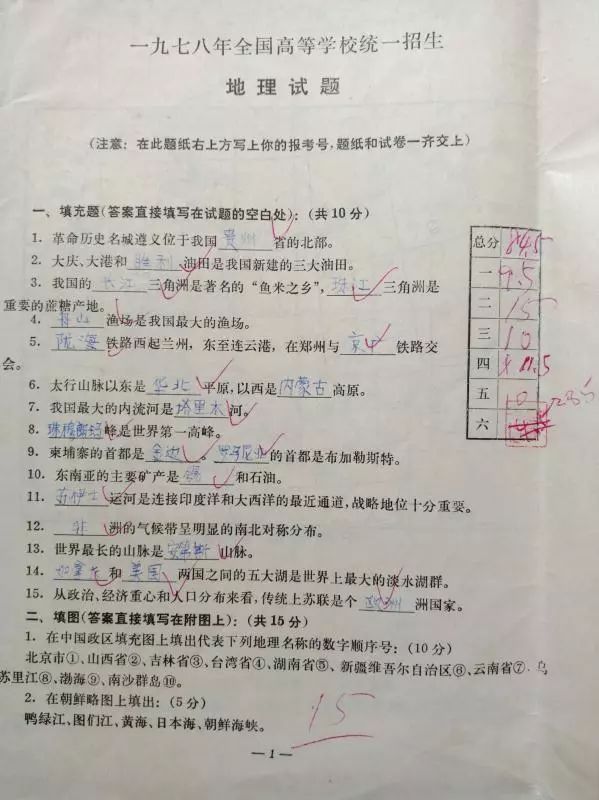 一九七八年全国高等学校统一招生
地理试题
(注意：在此题纸右上方写上你的报考号，题纸和试卷一齐交上)
一、填充题(答案直接填写在试题的空白处)：(共10分)
1. 革命历史名城遵义位于我国 贵州 省的北部。
2. 大庆、大港和 胜利 油田是我国新建的三大油田。
3. 我国的 长江 三角洲是著名的“鱼米之乡”， 珠江 三角洲是
重要的蔗糖产地。
4. 舟山 渔场是我国最大的渔场。
5. 陇海 铁路西起兰州，东至连云港，在郑州与 京广 铁路交
会。
6. 太行山脉以东是 华北 平原，以西是 内蒙古 高原。
7. 我国最大的内流河是 塔里木 河。
8. 珠穆朗玛 峰是世界第一高峰。
9. 柬埔寨的首都是 金边 。 罗马尼亚 的首都是布加勒斯特。
10. 东南亚的主要矿产是 锡 和石油。
11. 苏伊士 运河是连接印度洋和大西洋的最近通道，战略地位十分重要。
12. 非 洲的气候带呈明显的南北对称分布。
13. 世界最长的山脉是 安第斯 山脉。
14. 加拿大 和 美国 两国之间的五大湖是世界上最大的淡水湖群。
15. 从政治、经济重心和人口分布来看，传统上苏联是个 欧洲 洲国家。
二、填图(答案直接填写在附图上)：(共15分)
1. 在中国政区填充图上填出代表下列地理名称的数字顺序号：(10分)
北京市①、山西省②、吉林省③、台湾省④、湖南省⑤、新疆维吾尔自治区⑥、云南省⑦、乌
苏里江⑧、渤海⑨、南沙群岛⑩。
2. 在朝鲜略图上填出：(5分)
鸭绿江、图们江、黄海、日本海、朝鲜海峡。
15
— 1 —
总分 84.5
一 9.5
二 15
三 10
四 11.5
五 10
六